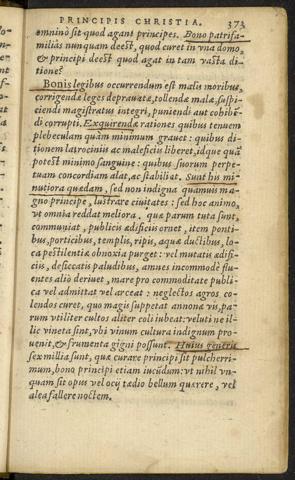 PRINCIPIS CHRISTIA. 373
omnino sit quod agant principes. Bono patrifa-
milias nunquam deest, quod curet in vna domo,
& principi deest quod agat in tam vasta di-
tione?
Bonis legibus occurrendum est malis moribus,
corrigendæ leges deprauatæ, tollendæ malæ, suspi-
ciendi magistratus integri, puniendi aut cohibē-
di corrupti. Exquirendæ rationes quibus tenuem
plebeculam quàm minimum grauet: quibus di-
tionem latrociniis ac maleficiis liberet, idque quà
potest minimo sanguine: quibus suorum perpe-
tuam concordiam alat, ac stabiliat. Sunt his mi-
nutiora quædam, sed non indigna quamuis ma-
gno principe, lustrare ciuitates: sed hoc animo,
vt omnia reddat meliora. quæ parum tuta sunt
communiat, publicis ædificiis ornet, item ponti-
bus, porticibus, templis, ripis, aquæ ductibus, lo-
ca pestilentiæ obnoxia purget: vel mutatis ædifi-
ciis, desiccatis paludibus, amnes incommodè flu-
entes aliò deriuet, mare pro commoditate publi-
ca vel admittat vel arceat: neglectos agros co-
lendos curet, quo magis suppetat annona vis, pa-
rum vtiliter cultos aliter coli iubeat: veluti ne il-
lic vineta sint, vbi vinum cultura indignum pro-
uenit, & frumenta gigni possunt. Huius generis
sex millia sunt, quæ curare principi sit pulcherri-
mum, bono principi etiam iucūdum: vt nihil vn-
quam sit opus vel ocij tædio bellum quærere, vel
alea fallere noctem.